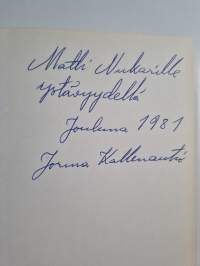 Matti Nukarille
ystävyydellä
Jouluna 1981
Jorma Kallenautio